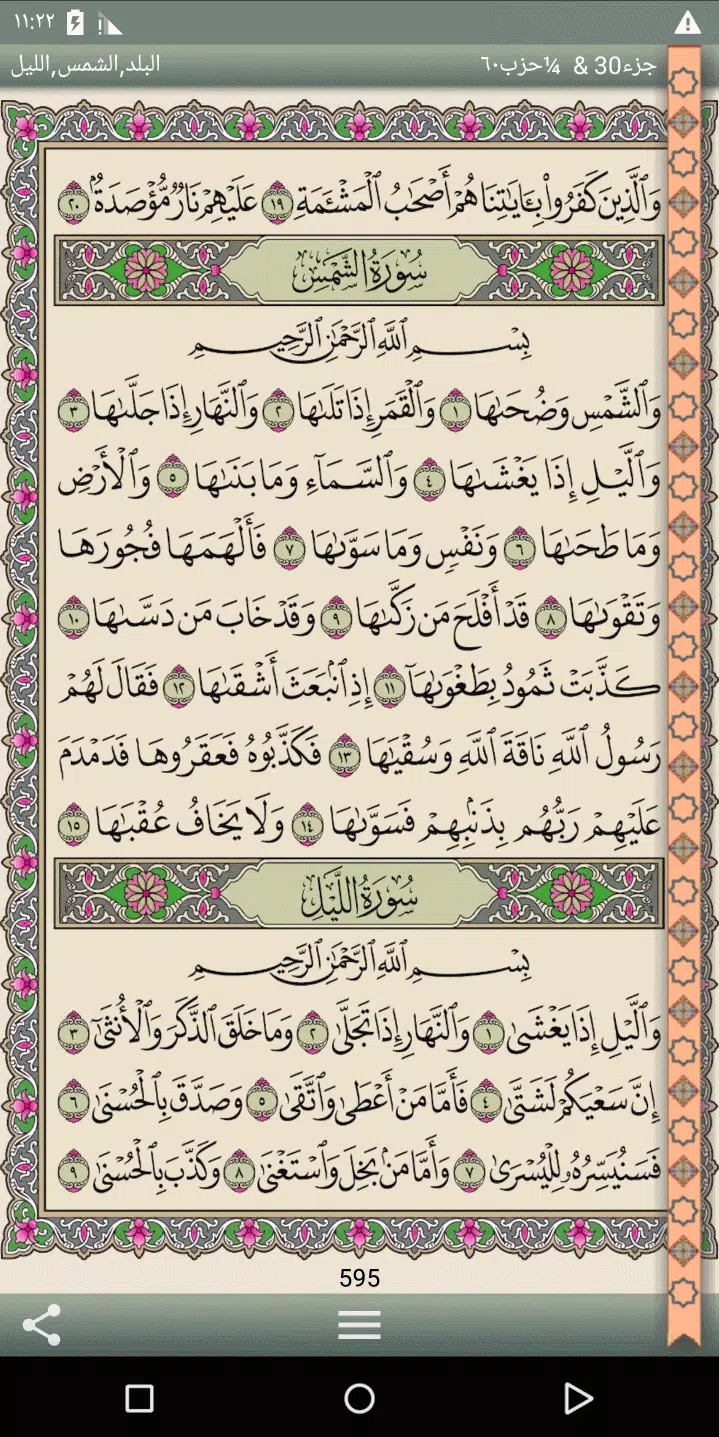 ١١:٢٢
جزء30 & ¼حزب٦٠
البلد,الشمس,الليل
وَٱلَّذِينَ كَفَرُوا۟ بِـَٔايَـٰتِنَا هُمْ أَصْحَـٰبُ ٱلْمَشْـَٔمَةِ ١٩ عَلَيْهِمْ نَارٌ مُّؤْصَدَةٌۢ ٢٠
سُورَةُ الشَّمْسِ
بِسْمِ ٱللَّهِ ٱلرَّحْمَـٰنِ ٱلرَّحِيمِ
وَٱلشَّمْسِ وَضُحَىٰهَا ١ وَٱلْقَمَرِ إِذَا تَلَىٰهَا ٢ وَٱلنَّهَارِ إِذَا جَلَّىٰهَا ٣
وَٱلَّيْلِ إِذَا يَغْشَىٰهَا ٤ وَٱلسَّمَآءِ وَمَا بَنَىٰهَا ٥ وَٱلْأَرْضِ
وَمَا طَحَىٰهَا ٦ وَنَفْسٍ وَمَا سَوَّىٰهَا ٧ فَأَلْهَمَهَا فُجُورَهَا
وَتَقْوَىٰهَا ٨ قَدْ أَفْلَحَ مَن زَكَّىٰهَا ٩ وَقَدْ خَابَ مَن دَسَّىٰهَا ١٠
كَذَّبَتْ ثَمُودُ بِطَغْوَىٰهَآ ١١ إِذِ ٱنۢبَعَثَ أَشْقَىٰهَا ١٢ فَقَالَ لَهُمْ
رَسُولُ ٱللَّهِ نَاقَةَ ٱللَّهِ وَسُقْيَـٰهَا ١٣ فَكَذَّبُوهُ فَعَقَرُوهَا فَدَمْدَمَ
عَلَيْهِمْ رَبُّهُم بِذَنۢبِهِمْ فَسَوَّىٰهَا ١٤ وَلَا يَخَافُ عُقْبَـٰهَا ١٥
سُورَةُ اللَّيْلِ
بِسْمِ ٱللَّهِ ٱلرَّحْمَـٰنِ ٱلرَّحِيمِ
وَٱلَّيْلِ إِذَا يَغْشَىٰ ١ وَٱلنَّهَارِ إِذَا تَجَلَّىٰ ٢ وَمَا خَلَقَ ٱلذَّكَرَ وَٱلْأُنثَىٰٓ ٣
إِنَّ سَعْيَكُمْ لَشَتَّىٰ ٤ فَأَمَّا مَنْ أَعْطَىٰ وَٱتَّقَىٰ ٥ وَصَدَّقَ بِٱلْحُسْنَىٰ ٦
فَسَنُيَسِّرُهُۥ لِلْيُسْرَىٰ ٧ وَأَمَّا مَنۢ بَخِلَ وَٱسْتَغْنَىٰ ٨ وَكَذَّبَ بِٱلْحُسْنَىٰ ٩
595